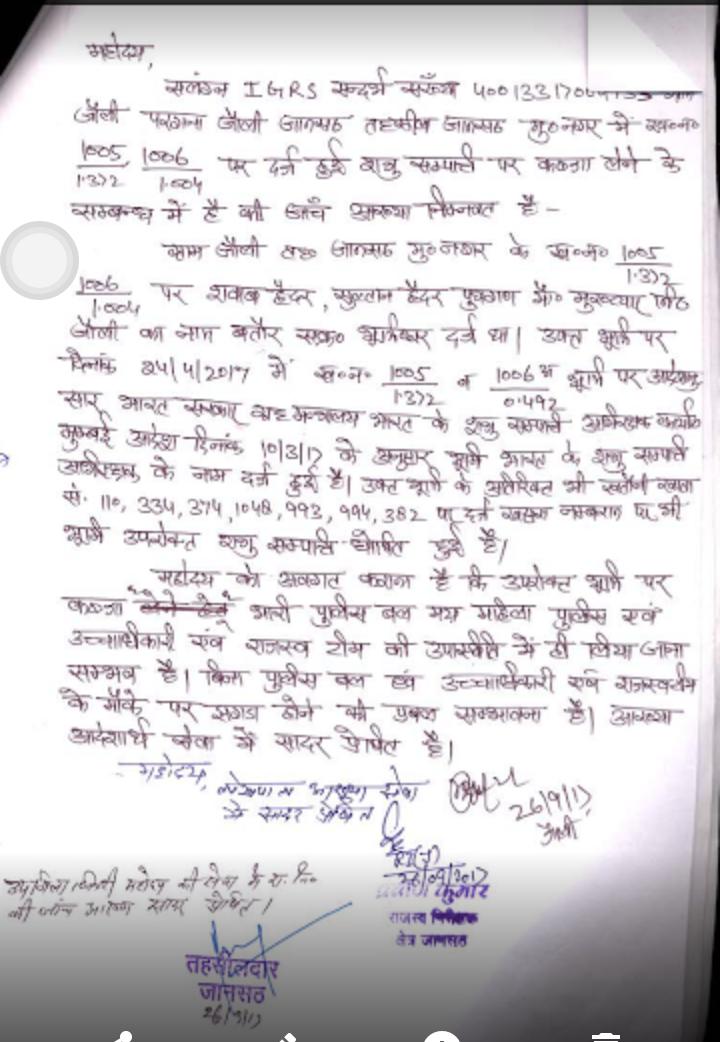 महोदय,
सलंग्न IGRS सन्दर्भ संख्या ग्राम
जौली परगना जौली जानसठ तहसील जानसठ मु०नगर में ख०न०
1005/1.372, 1006/1.004 पर दर्ज हुई शत्रु सम्पत्ति पर कब्जा लेने के
सम्बन्ध में है की जाँच आख्या निम्नवत है -
ग्राम जौली तह० जानसठ मु०नगर के ख०न० 1005/1.372
1006/1.004 पर हैदर, सुल्तान हैदर पुत्रगण मुख्त्यार नि०
जौली का नाम बतौर भूमिधर दर्ज था। उक्त भूमि पर
दिनांक 24/4/2017 में ख०न० 1005/1.372 व 1006/0.492 भूमि पर आदेशानु
सार भारत सरकार ग्रह मन्त्रालय भारत के शत्रु सम्पत्ति अभिरक्षक कार्यालय
मुम्बई आदेश दिनांक 10/3/17 के अनुसार भूमि भारत के शत्रु सम्पत्ति
अभिरक्षक के नाम दर्ज हुई है। उक्त भूमि के अतिरिक्त भी खतौनी खाता
सं. 110, 334, 374, 1048, 993, 994, 382 पर दर्ज खसरा नम्बरान पर भी
भूमि उपरोक्त शत्रु सम्पत्ति घोषित हुई है।
महोदय को अवगत कराना है कि उपरोक्त भूमि पर
कब्जा भारी पुलिस बल मय महिला पुलिस एवं
उच्चाधिकारी एवं राजस्व टीम की उपस्थिति में ही लिया जाना
सम्भव है। बिना पुलिस बल एवं उच्चाधिकारी एवं राजस्व टीम
के मौके पर झगडा होने की प्रबल सम्भावना है। आख्या
आदेशार्थ सेवा में सादर प्रेषित है।
महोदय,
लेखपाल आख्या सेवा
में सादर प्रेषित
26/9/17
जौली
26/09/2017
प्रवीण कुमार
राजस्व निरीक्षक
क्षेत्र जानसठ
उपजिलाधिकारी महोदय की सेवा में रा. नि०
की जांच आख्या सादर प्रेषित।
तहसीलदार
जानसठ
26/9/17